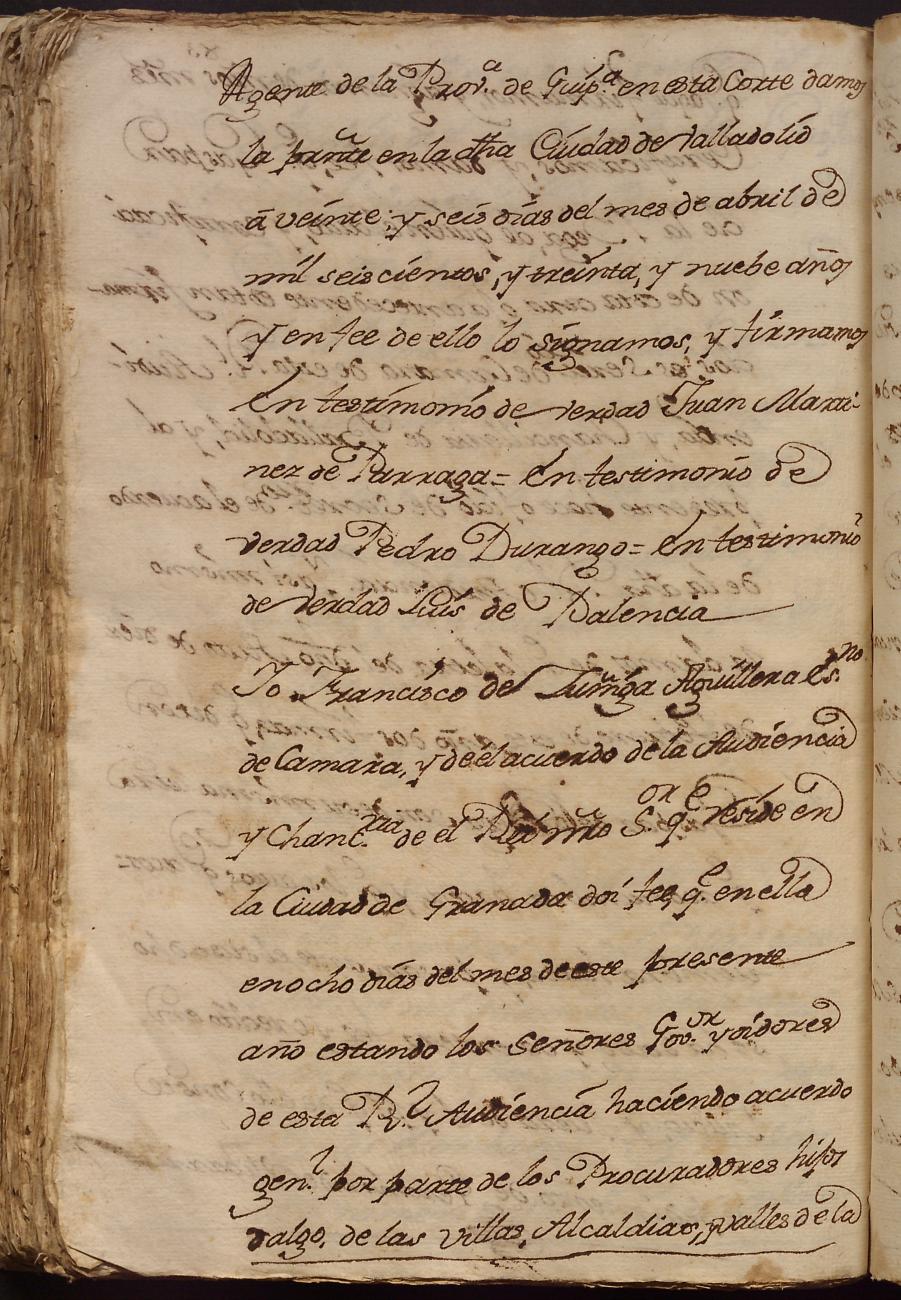 Agente de la Prov.ª de Guip.ª en esta Corte damos
la pres̃te en la dh̃a Ciudad de Valladolid
â veinte, y seis dias del mes de abril de
mil seiscientos, y treinta, y nuebe años
y en fee de ello lo signamos, y firmamos
En testimonio de verdad Juan Marti-
nez de Parraga = En testimonio de
verdad Pedro Durango = En testimonio
de verdad Luis de Palencia
Yo Francisco de Zuñiga Aguillera Es.no
de Camara, y de el acuerdo de la Audiencia
y Chanc.ria de el Rei nr̃o S.or q.e reside en
la Ciudad de Granada doi fee, q.e en ella
en ocho dias del mes de este presente
año estando los Señores Gov.or y oidores
de esta R.l Audiencia haciendo acuerdo
gen.l por parte de los Procuradores hijos
dalgo, de las villas, Alcaldias, y valles de la